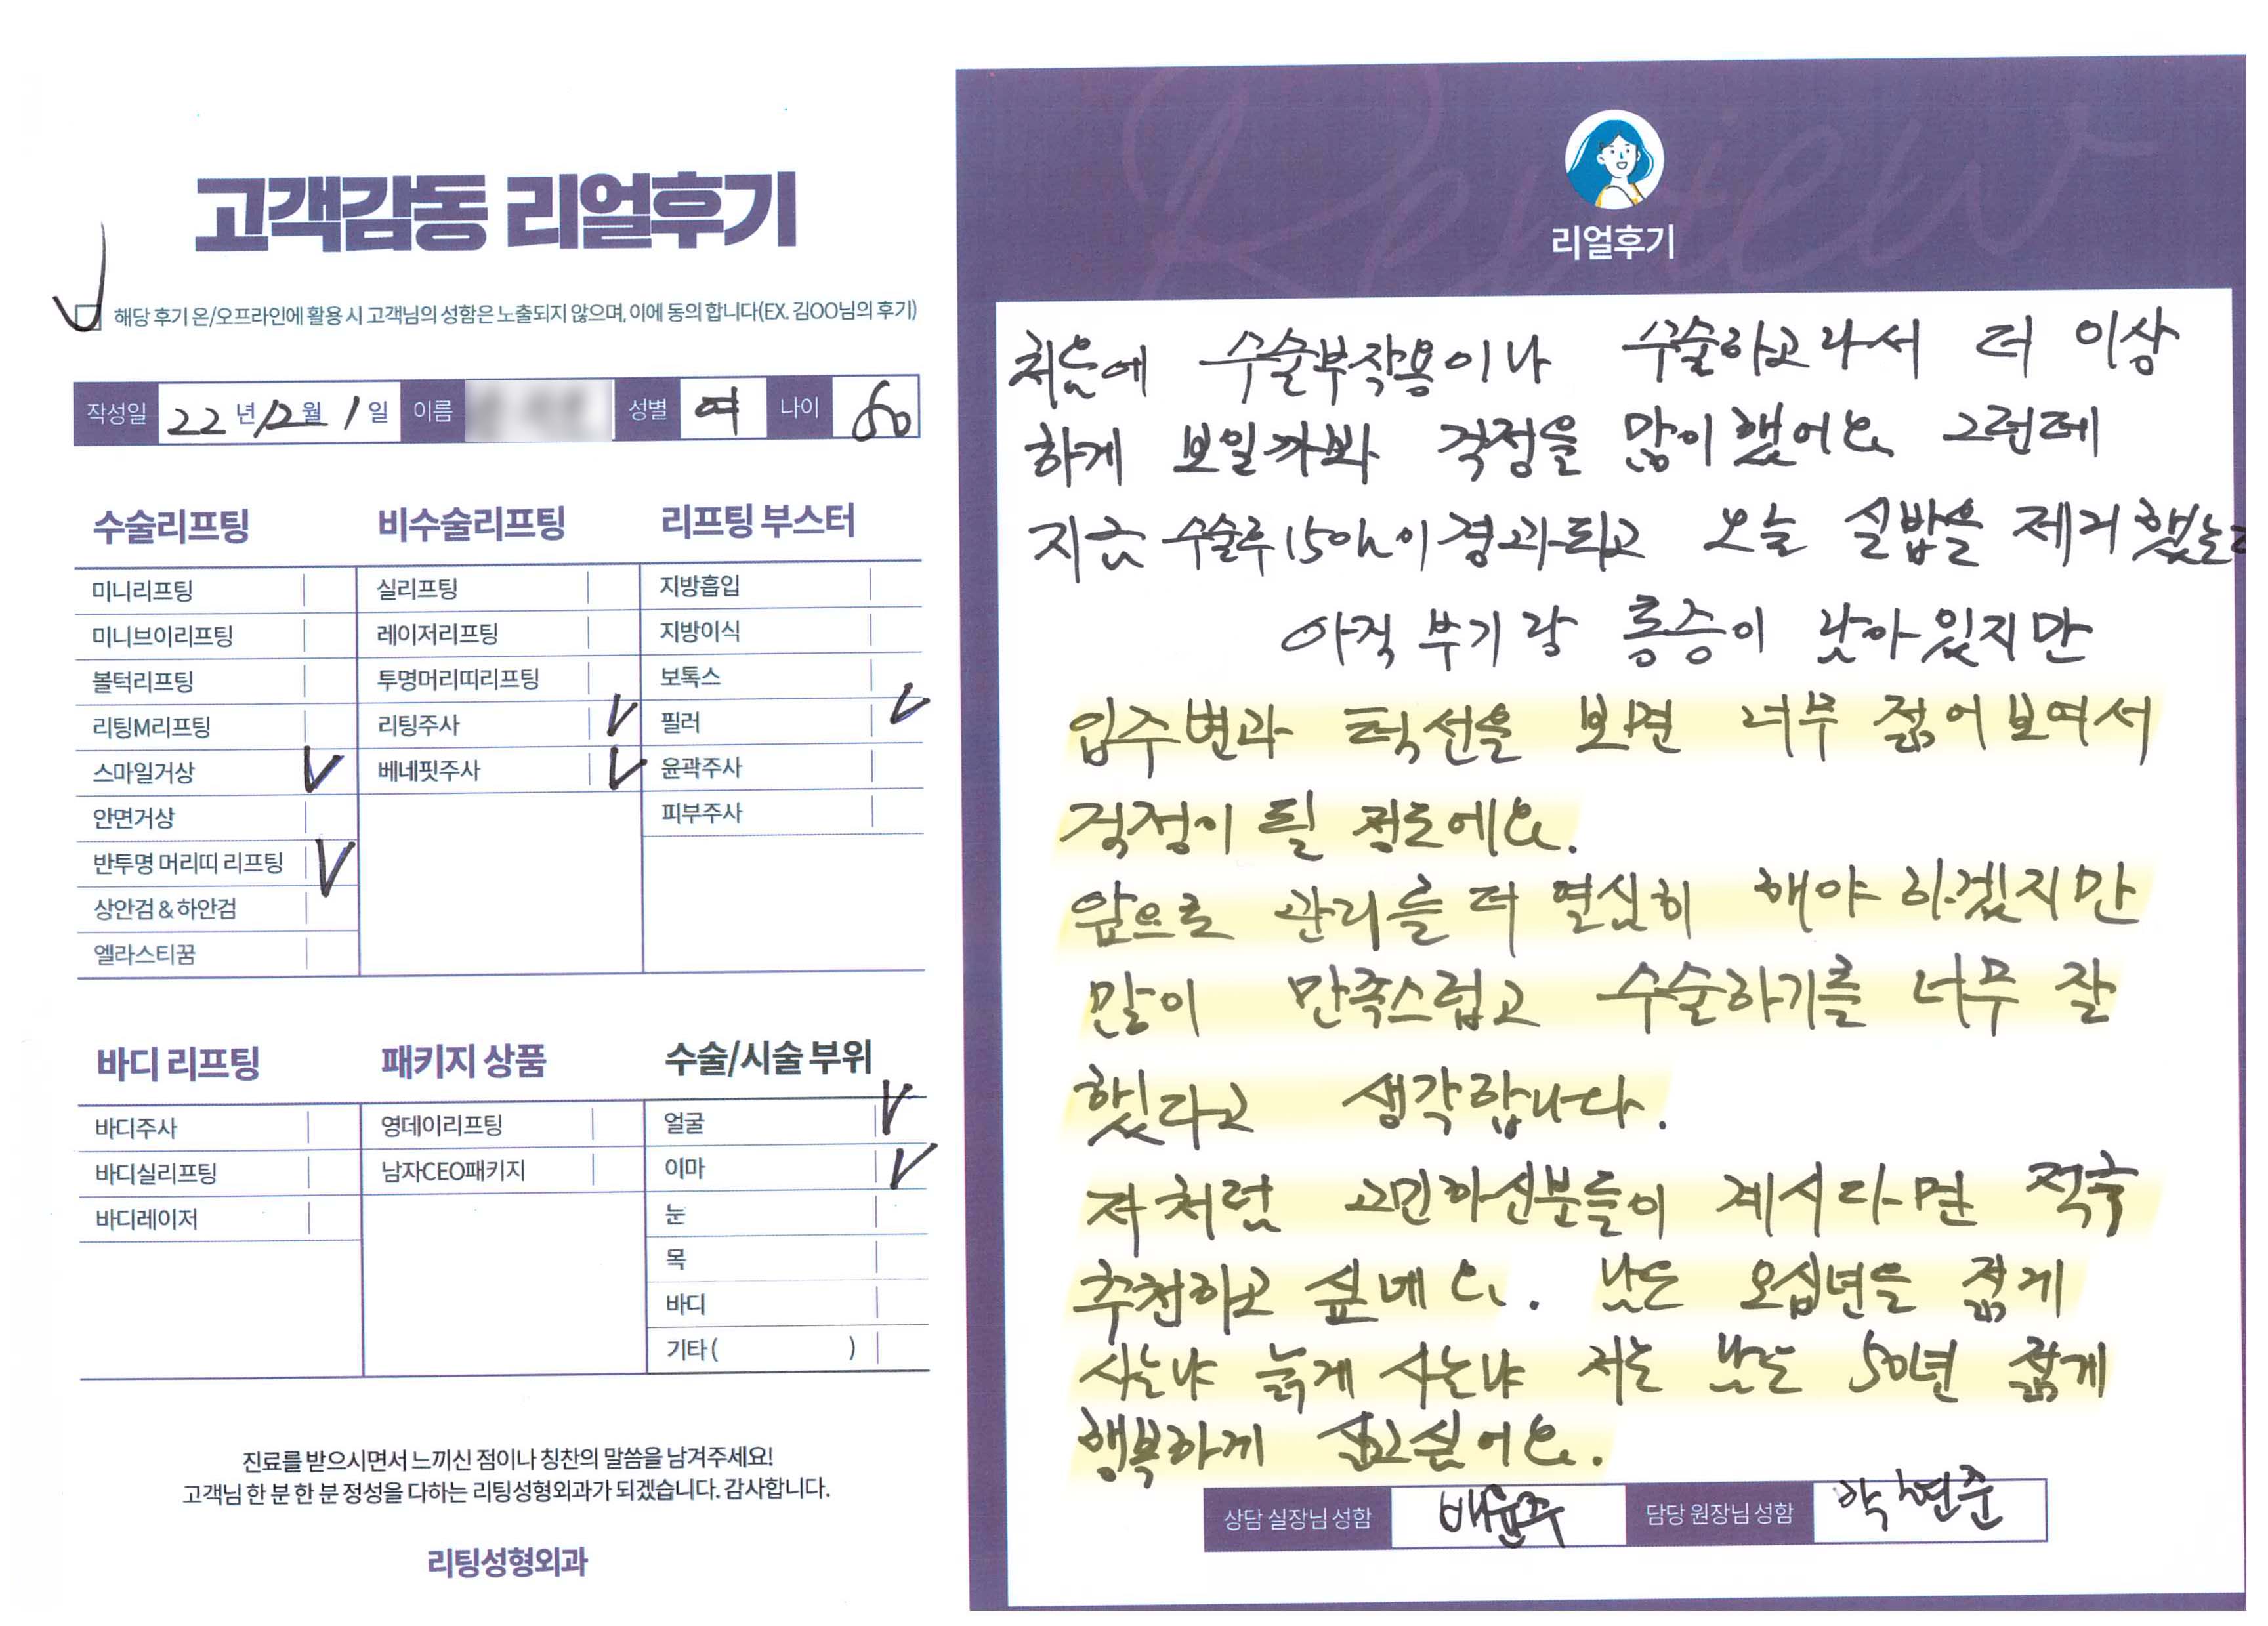 고객감동 리얼후기
해당 후기 온/오프라인에 활용 시 고객님의 성함은 노출되지 않으며, 이에 동의 합니다(EX. 김OO님의 후기)
작성일 22년 12월 1일 이름 성별 여 나이
수술리프팅 비수술리프팅 리프팅 부스터
미니리프팅 실리프팅 지방흡입
미니브이리프팅 레이저리프팅 지방이식
볼턱리프팅 투명머리띠리프팅 보톡스
리팅M리프팅 리팅주사 필러
스마일거상 베네핏주사 윤곽주사
안면거상 피부주사
반투명 머리띠 리프팅
상안검 & 하안검
엘라스티꿈
바디 리프팅 패키지 상품 수술/시술 부위
바디주사 영데이리프팅 얼굴
바디실리프팅 남자CEO패키지 이마
바디레이저 눈
목
바디
기타 ( )
진료를 받으시면서 느끼신 점이나 칭찬의 말씀을 남겨주세요!
고객님 한 분 한 분 정성을 다하는 리팅성형외과가 되겠습니다. 감사합니다.
리팅성형외과
Review
리얼후기
처음에 수술부작용이나 수술하고나서 더 이상
하게 보일까봐 걱정을 많이했어요 그런데
지금 수술후 15일이 경과되고 오늘 실밥을 제거했는데
아직 부기랑 통증이 남아있지만
입주변과 턱선을 보면 너무 젊어보여서
걱정이 될 정도에요.
앞으로 관리를 더 열심히 해야 하겠지만
많이 만족스럽고 수술하기를 너무 잘
했다고 생각합니다.
저처럼 고민하신분들이 계시다면 적극
추천하고 싶네요. 남은 오십년을 젊게
사느냐 늙게 사느냐 저는 남은 50년 젊게
행복하게 살고싶어요.
상담 실장님 성함 배윤주 담당 원장님 성함 박현준